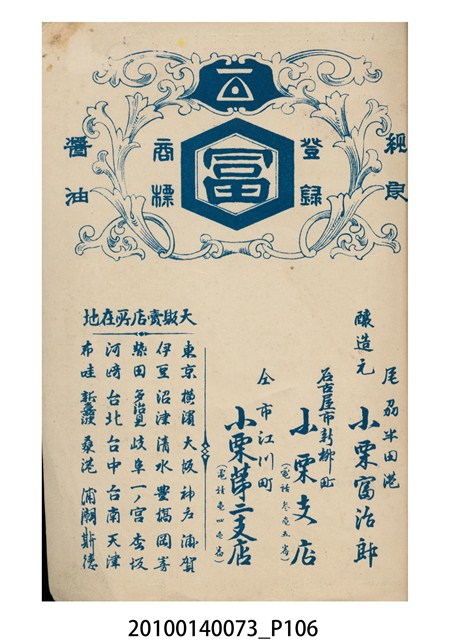 純良
登録
冨
商標
醬油
尾刕半田港
醸造元 小栗冨治郎
名古屋市新柳町
小栗支店
(電話参壱五番)
仝市江川町
小栗第二支店
(電話壱四壱番)
大販賣店所在地
東京 横濱 大阪 神戸 浦賀
伊豆 沼津 清水 豊橋 岡崎
柴田 多治見 岐阜 一ノ宮
河崎 台北 台中 台南 天津
布哇 新嘉坡 桑港 浦潮斯德
20100140073_P106